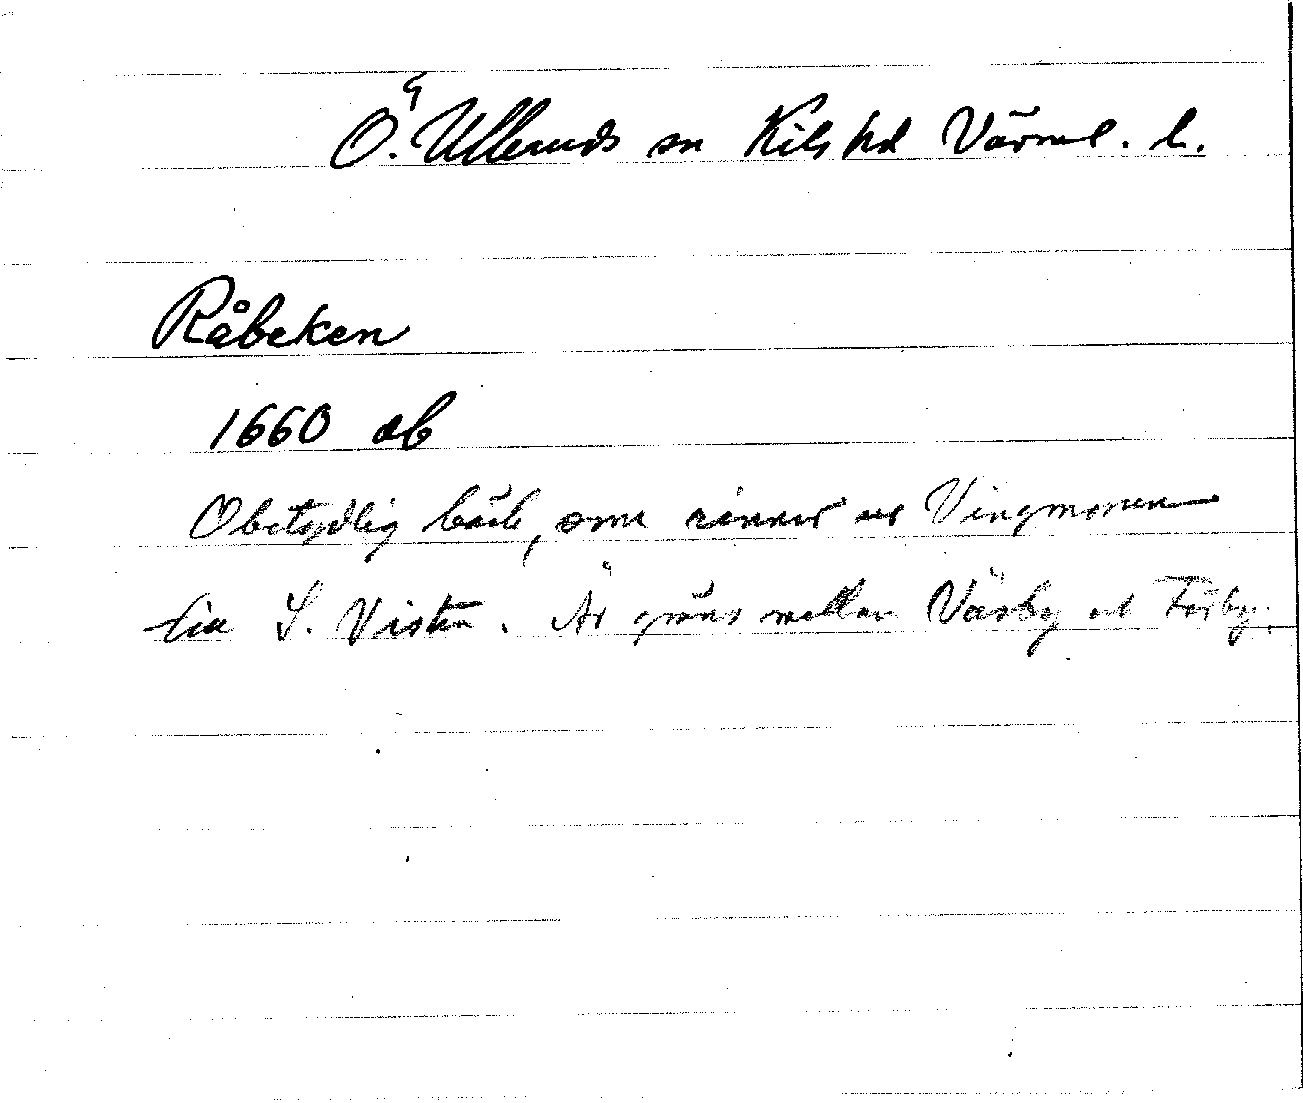 Ö. Ulleruds sn Kils hd Värml. l.
Råbeken
1660 ab
Obetydlig bäck, som rinner ur Vingmossen
till S. Visten. Är gräns mellan Väsby och Torsby.